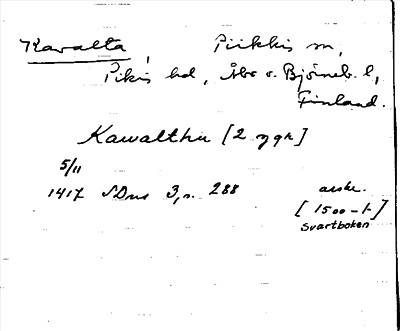 Kavalta, Piikkis sn,
Pikis hd, Åbo o. Björneb. l,
Finland.
Kawalthu [2 ggr]
5/11
1417 SDns 3, s. 288 avskr.
[1500-t]
Svartboken